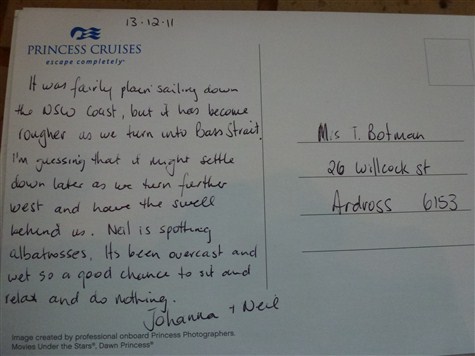 13.12.11
PRINCESS CRUISES
escape completely
It was fairly plain sailing down
the NSW Coast, but it has become
rougher as we turn into Bass Strait.
I'm guessing that it might settle
down later as we turn further
west and have the swell
behind us. Neil is spotting
albatrosses. Its been overcast and
wet so a good chance to sit and
relax and do nothing.
Johanna + Neil
Ms T. Botman
26 Willcock st
Ardross 6153
Image created by professional onboard Princess Photographers.
Movies Under the Stars®, Dawn Princess®